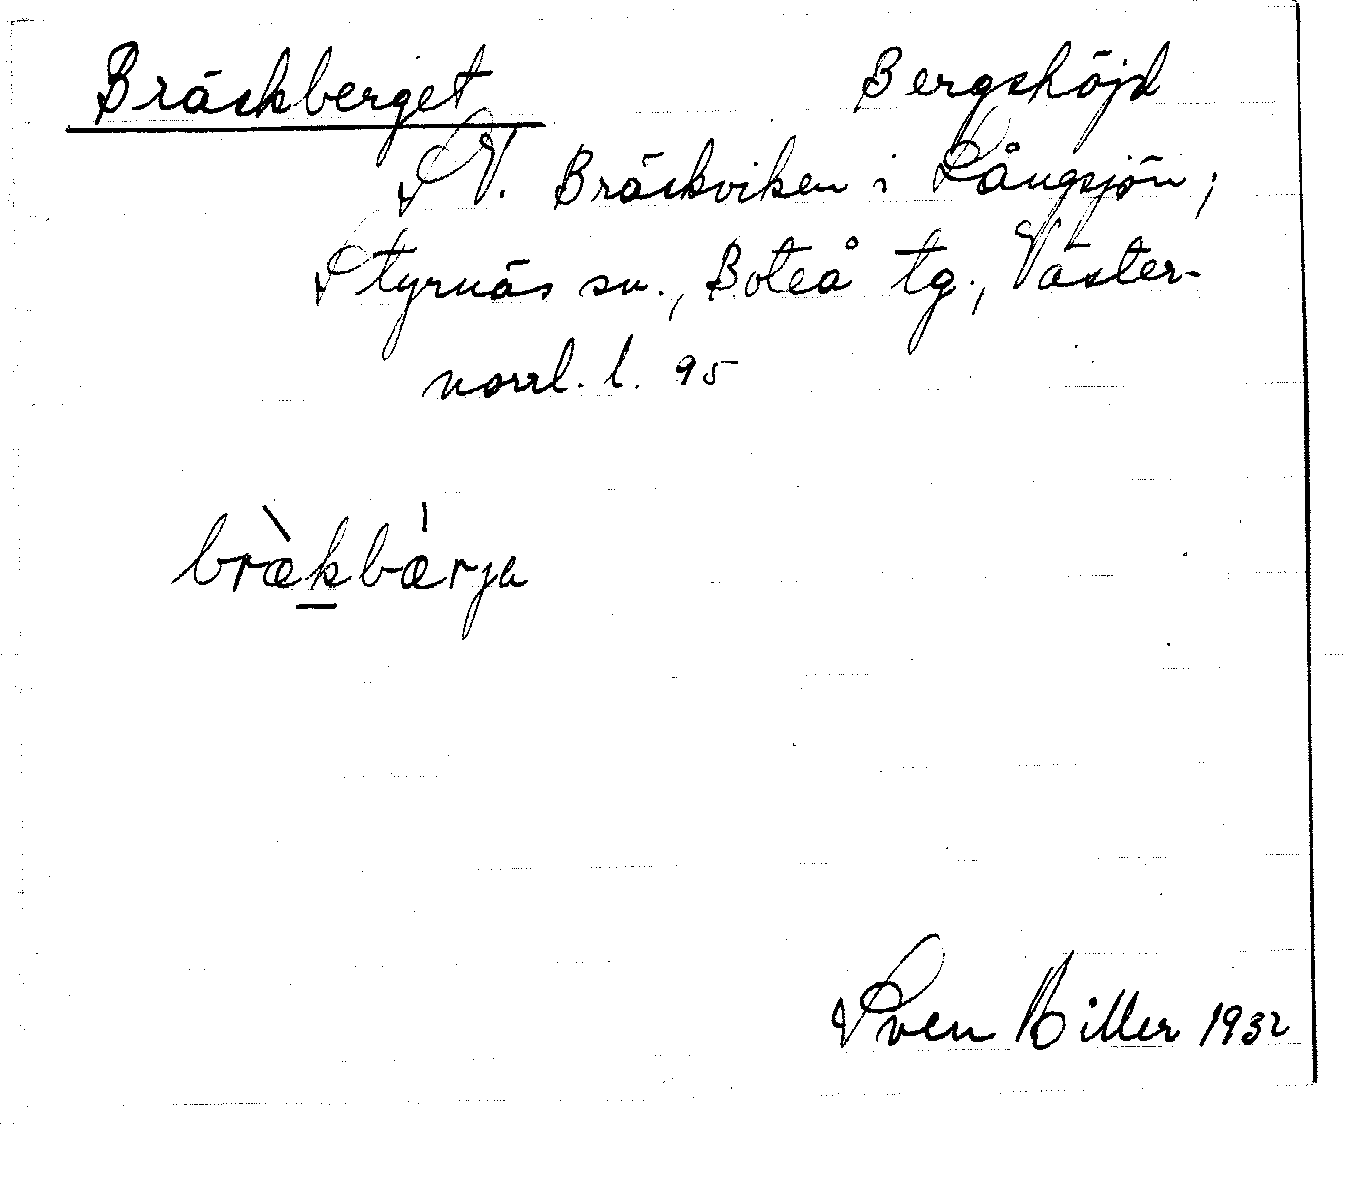 Bräckberget Bergshöjd
SV. Bräckviken i Långsjön;
Styrnäs sn., Boteå tg., Väster-
norrl. l. 95
bræ̀kbǽrja
Sven Hiller 1932